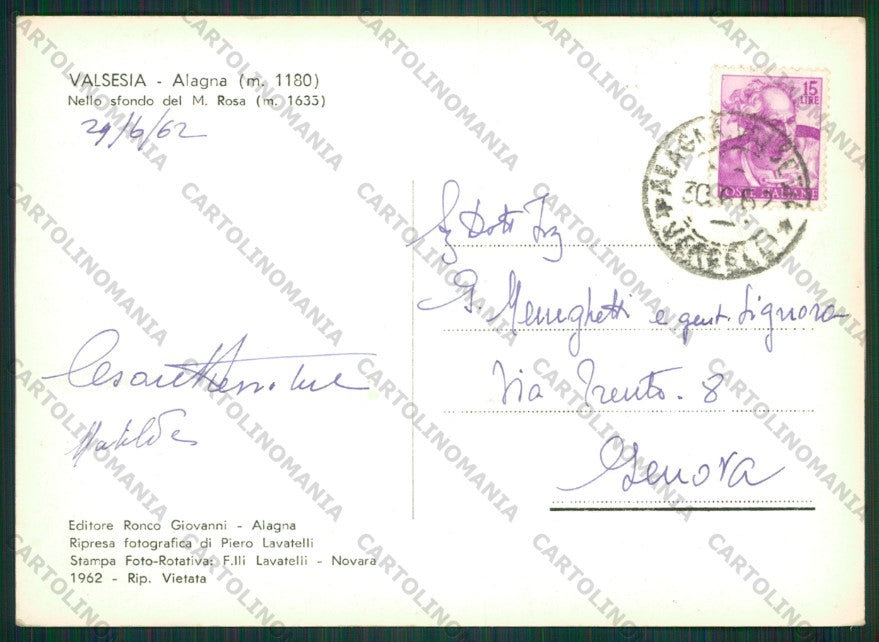 VALSESIA - Alagna (m. 1180)
Nello sfondo del M. Rosa (m. 1635)
29/6/62
15
LIRE
POSTE ITALIANE
30.6.62
Dott.
G. Meneghetti e gent. Signora
Via Trento. 8
Genova
Cesare
Matilde
Editore Ronco Giovanni - Alagna
Ripresa fotografica di Piero Lavatelli
Stampa Foto-Rotativa: F.lli Lavatelli - Novara
1962 - Rip. Vietata
CARTOLINOMANIA